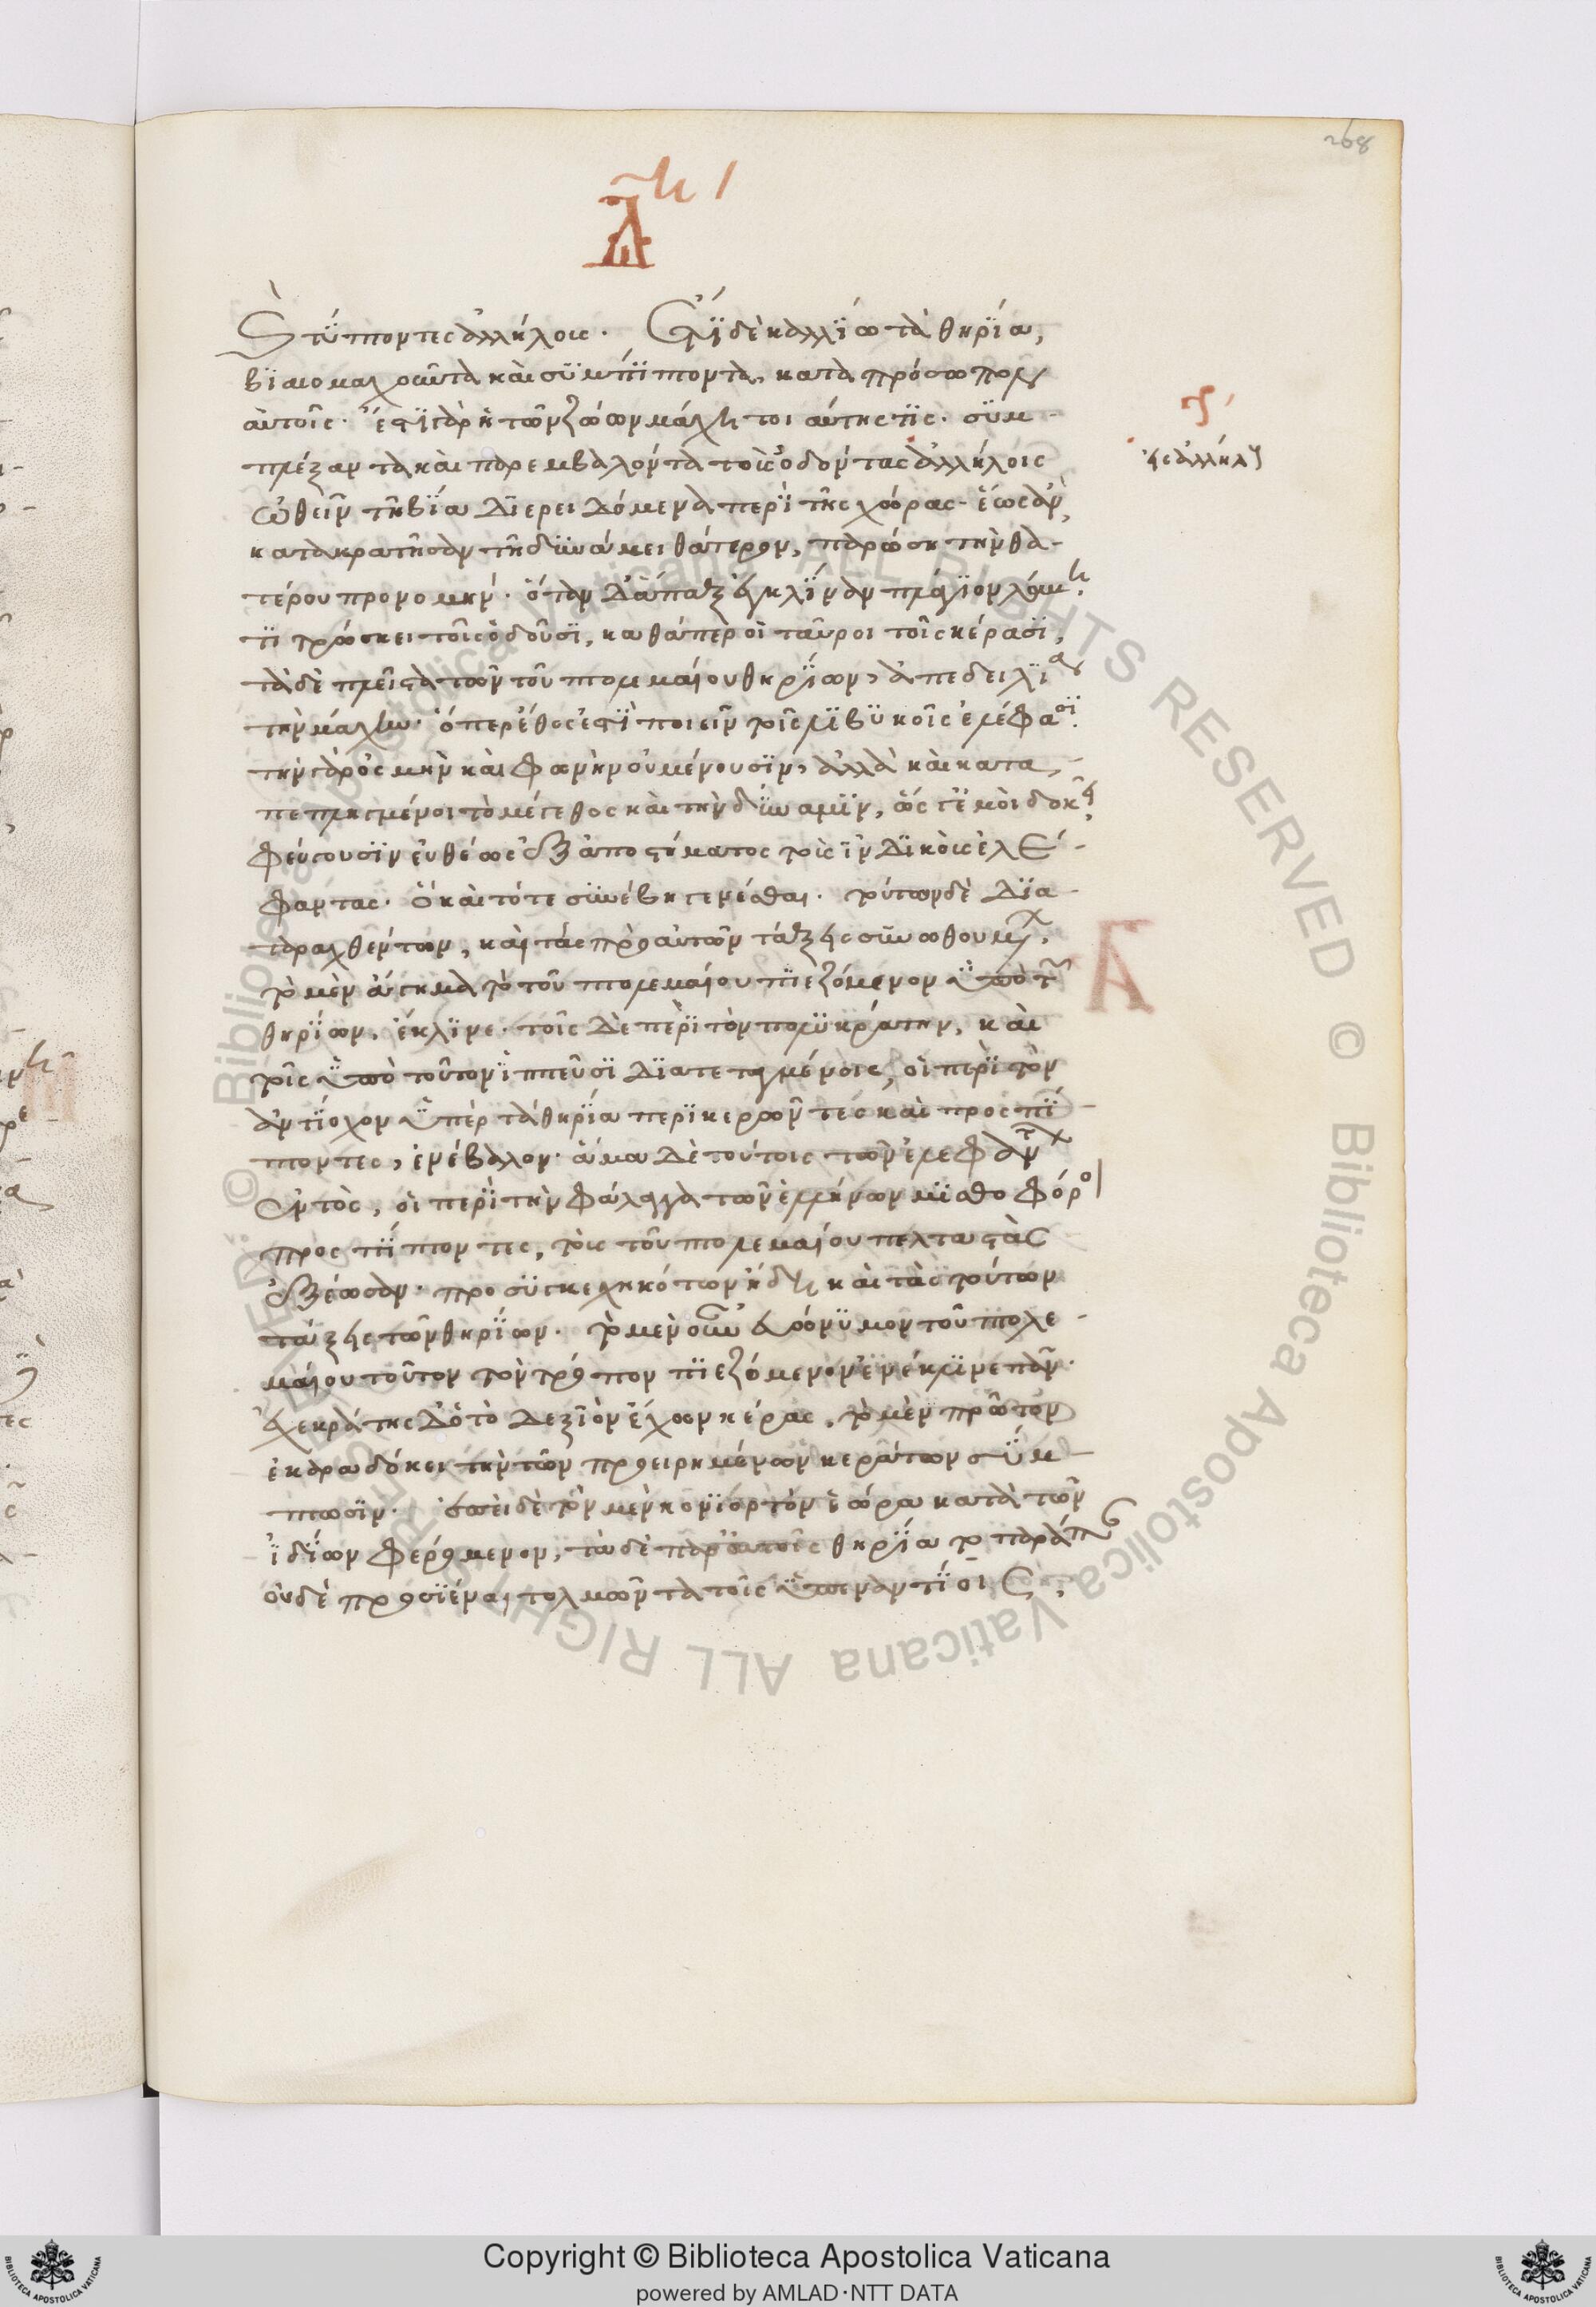 λη
Α
καὶ τύπτοντες ἀλλήλοις. ἔτι δὲ καλλίω τὰ θηρία,
βιαιομαχοῦντα καὶ συμπίπτοντα, κατὰ πρόσωπον
αὐτοῖς. ἔστι γὰρ ἡ τῶν ζώων μάχη τοι αύτης τίς. συμ-
πλέξαντα καὶ παρεμβαλόντα τοὶς ὀδόντας ἀλλήλοις
εἰς ἀλλήλους
ὠθεῖν τῆ βία διερειδόμενα περὶ τῆς χώρας. ἕως ἂν,
κατακρατῆσαν τῆ δυνάμει θάτερον, παρώση τὴν θα-
τέρου προνομήν. ὅταν δ' ἅπαξ ἐγκλίναν πλάγιον λάμη.
τιτρώσκει τοῖς ὀδοῦσι, καθάπερ οἱ ταῦροι τοῖς κέρασι,
τὰ δὲ πλεῖστα τῶν τοῦ πτολεμαίου θηρίων, ἀπεδειλία
τὴν μάχην. ὅπερ ἔθος ἐστὶ ποιεῖν τοῖς λιβυκοῖς ἐλέφασι.
τὴν γὰρ ὀσμὴν καὶ φωνὴν οὐ μένουσιν, ἀλλὰ καὶ κατα-
πεπληγμένοι τὸ μέγεθος καὶ τὴν δύναμιν, ὥς γ' ἐμοὶ δοκεῖ,
φεύγουσιν εὐθέως ἐξ ἀποστήματος τοὶς ἰνδικοὶς ἐλέ-
φαντας. ὃ καὶ τότε συνέβη γενέσθαι. τούτων δὲ δια-
ταραχθέντων, καὶ τὰς πρὸ αὐτῶν τάξεις συνωθουμένων,
Α
τὸ μὲν ἄγημα τὸ τοῦ πτολεμαίου πιεζόμενον ὑπὸ τῶν
θηρίων, ἔκλινε. τοῖς δὲ περὶ τὸν πολυκράτην, καὶ
τοῖς ὑπὸ τοῦτον ἱππεῦσι διατεταγμένοις, οἱ περὶ τὸν
ἀντίοχον ὑπὲρ τὰ θηρία περικερῶντες καὶ προσπί-
πτοντες, ἐνέβαλον. ἅμα δὲ τούτοις τῶν ἐλεφάντων
ἐντὸς, οἱ περὶ τὴν φάλαγγα τῶν ἑλλήνων μισθοφόροι
προσπίπτοντες, τοὶς τοῦ πτολεμαίου πελταστὰς
ἐξέωσαν. προσυγκεχηκότων ἤδη καὶ τὰς τούτων
τάξεις τῶν θηρίων. τὸ μὲν οὖν εὐώνυμον τοῦ πτολε-
μαίου τοῦτον τὸν τρόπον πιεζόμενον ἐνέκλινε πᾶν.
ἐχεκράτης δ' ὁ τὸ δεξιὸν ἔχων κέρας, τὸ μὲν πρῶτον
ἐκαραδόκει τὴν τῶν προειρημένων κεράτων σύμ-
πτωσιν. ἐπεὶ δὲ τὸν μὲν κονιορτὸν ἑώρα κατὰ τῶν
ἰδίων φερόμενον, τὰ δὲ παρ' αὐτοῖς θηρία τὸ παράπαν
οὐδὲ προσιέναι τολμῶντα τοῖς ὑπεναντίοις,